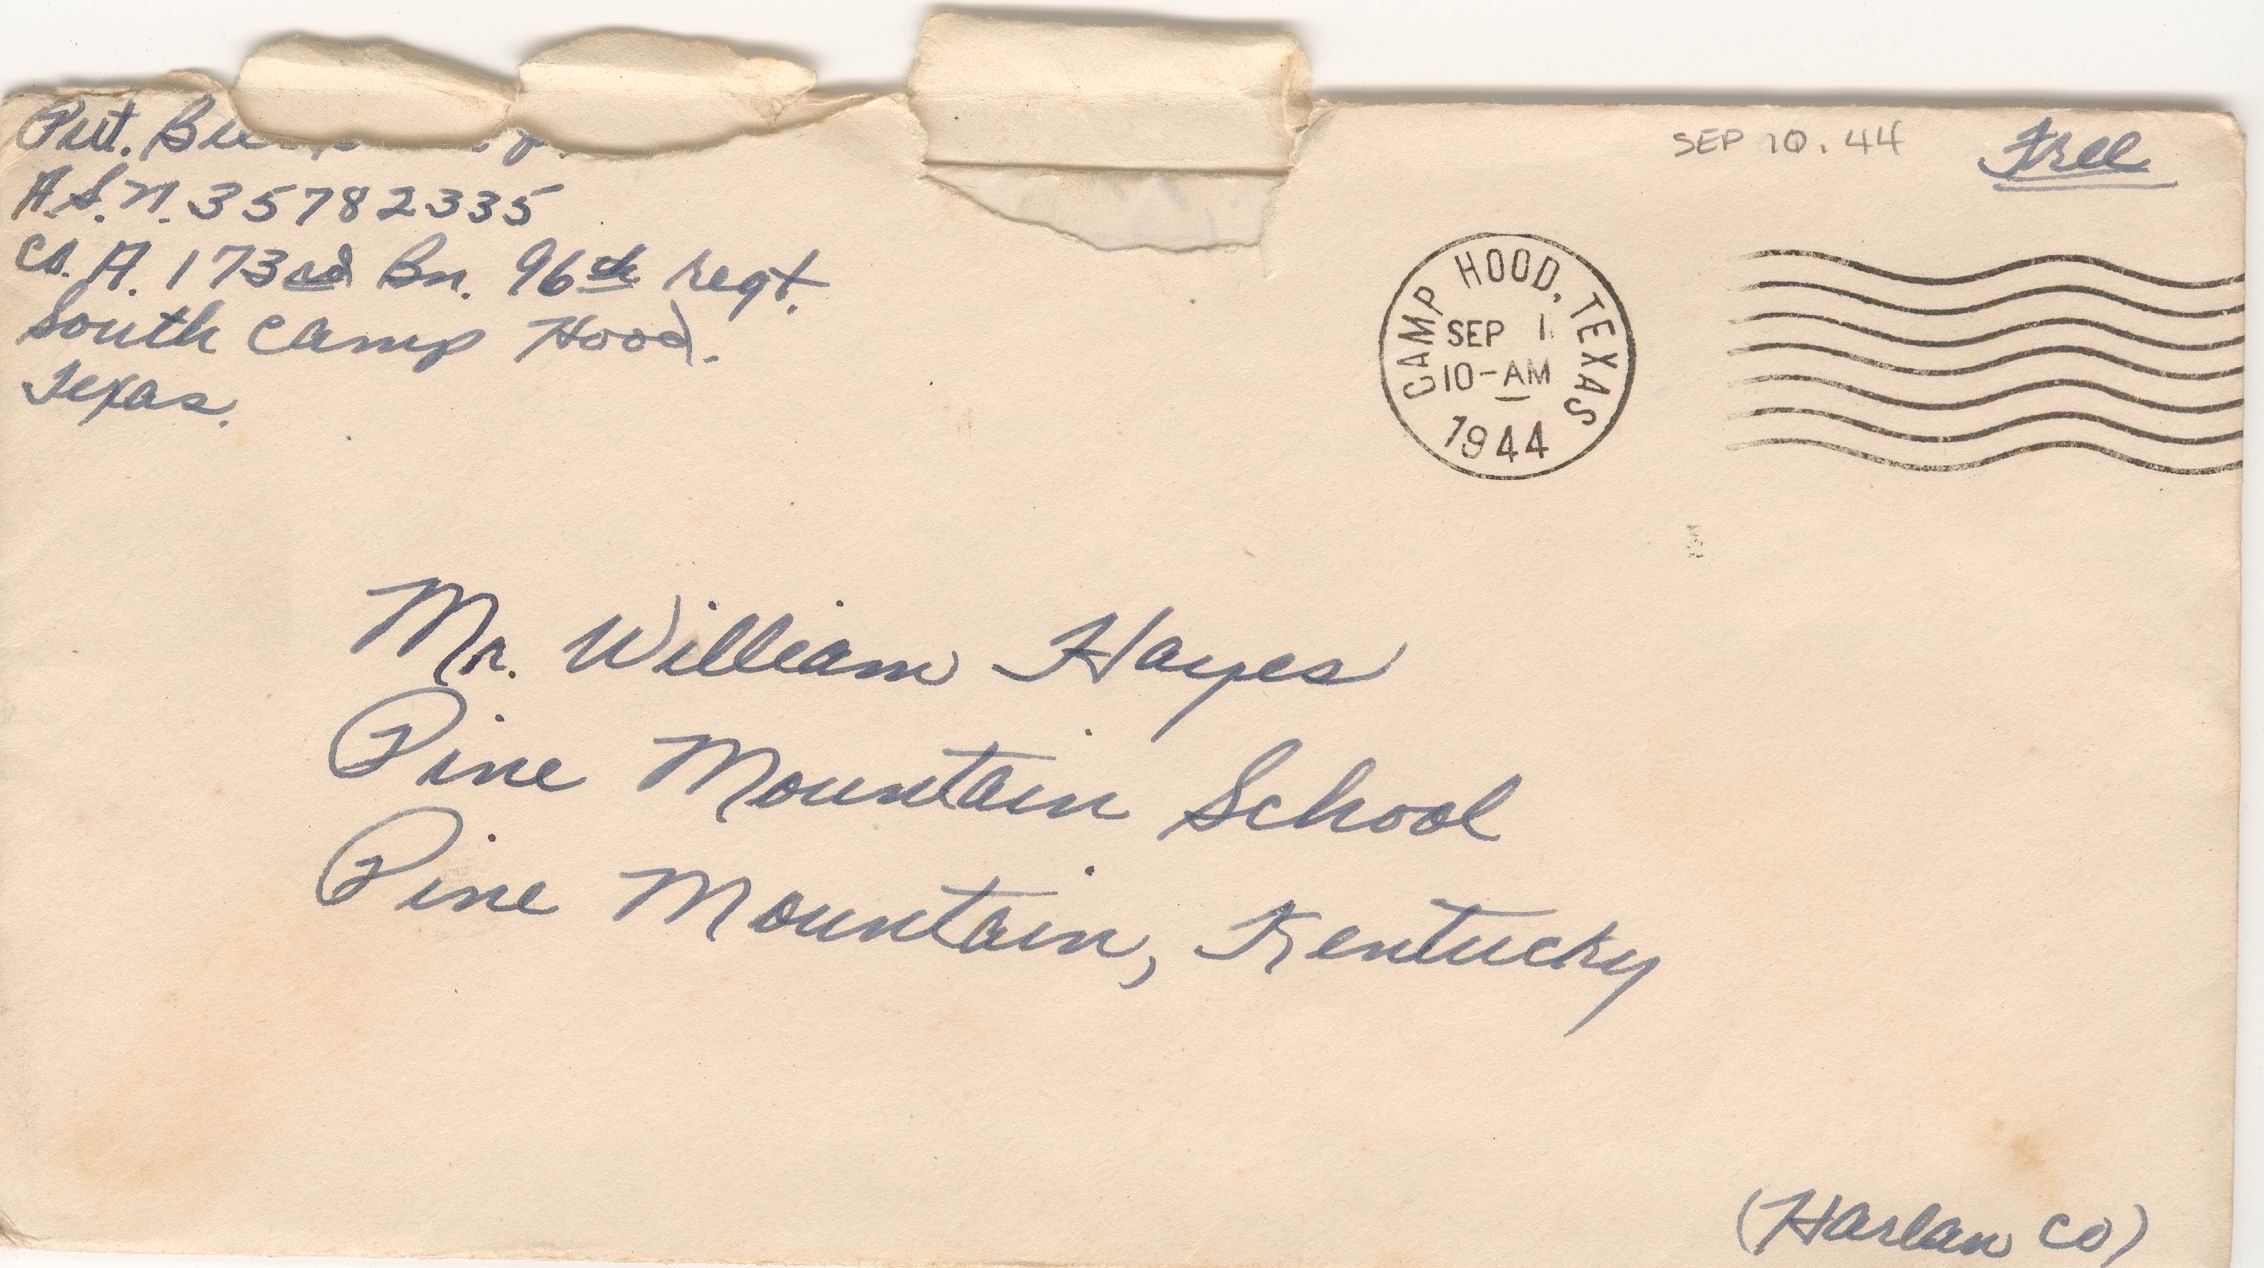 Pvt.
A.S.N. 35782335
Co. A. 173rd Bn. 96th regt.
South Camp Hood.
Texas.
SEP 10. 44
Free
CAMP HOOD, TEXAS
SEP 1
10-AM
1944
Mr. William Hayes
Pine Mountain School
Pine Mountain, Kentucky
(Harlan Co)